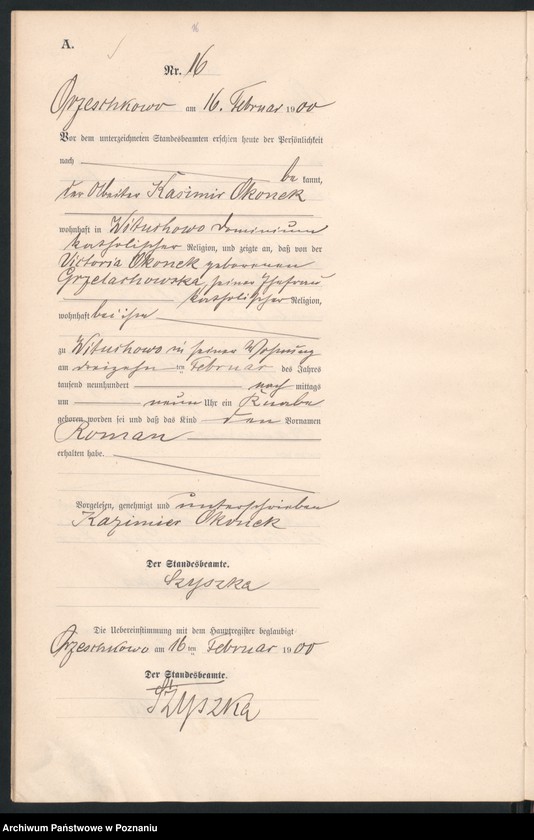 16
A.
Nr. 16
Orzeschkowo am 16. Februar 1900
Vor dem unterzeichneten Standesbeamten erschien heute der Persönlichkeit
nach be kannt,
der Arbeiter Kasimir Okonek
wohnhaft in Wituchowo Dominium
katholischer Religion, und zeigte an, daß von der
Victoria Okonek geborenen
Grzelachowska, seiner Ehefrau
katholischer Religion,
wohnhaft bei ihm
zu Wituchowo in seiner Wohnung
am dreizehn ten Februar des Jahres
tausend neunhundert nach mittags
um neun Uhr ein Knabe
geboren worden sei und daß das Kind den Vornamen
Roman
erhalten habe.
Vorgelesen, genehmigt und unterschrieben
Kazimier Okonek
Der Standesbeamte.
Szyszka
Die Uebereinstimmung mit dem Hauptregister beglaubigt
Orzeschkowo am 16 ten Februar 1900
Der Standesbeamte.
Szyszka
Archiwum Państwowe w Poznaniu